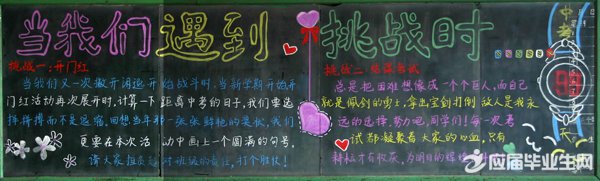 当我们遇到挑战时
挑战一:开门红
当我们又一次敞开闸迈开始战斗时,当新学期开始开
门红活动再次展开时,计算一下距离中考的日子,我们要选
择拼搏而不是退宿,回想当年那一张张鲜艳的奖状,我们
更要在本次活动中画上一个圆满的句号,
请大家担负起对班级的责任,打个胜仗!
挑战二:
总是把困难想像成一个个巨人,而自己
就是佩剑的勇士,拿出宝剑打倒敌人是我永
远的选择,努力吧,同学们!每一次考
试都凝聚着大家的心血,只有
耕耘才有收获,为明日的辉煌
中考
天
应届毕业生网